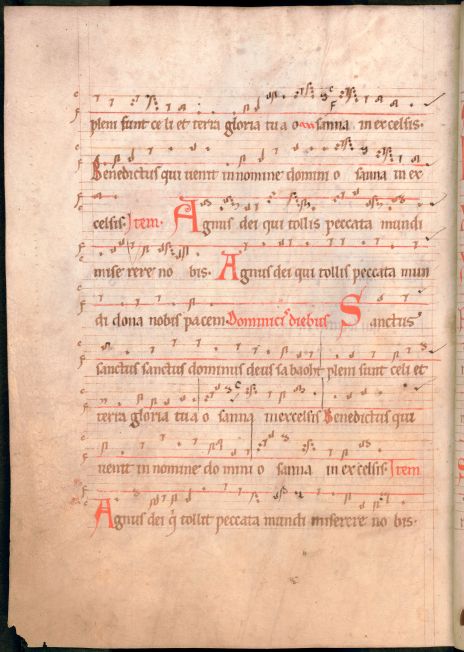 pleni sunt celi et terra gloria tua osanna in excelsis.
Benedictus qui venit in nomine domini osanna in ex
celsis. Item. Agnus dei qui tollis peccata mundi
miserere nobis. Agnus dei qui tollis peccata mun
di dona nobis pacem Dominicis diebus Sanctus
sanctus sanctus dominus deus sabaoht pleni sunt celi et
terra gloria tua osanna in excelsis Benedictus qui
venit in nomine domini osanna in excelsis. Item
Agnus dei q tollit peccata mundi miserere nobis.